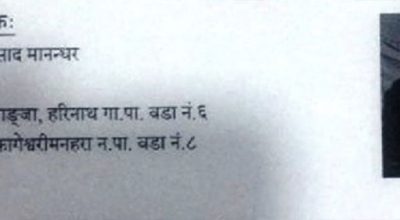 क:
साद मानन्धर
ाङ्जा, हरिनाथ गा.पा. वडा नं.६
कागेश्वरीमनहरा न.पा. वडा नं.८